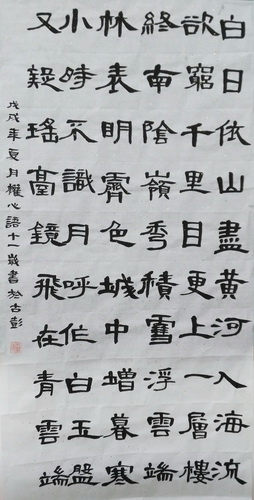 白日依山盡黃河入海流
欲窮千里目更上一層樓
終南陰嶺秀積雪浮雲端
林表明霽色城中增暮寒
小時不識月呼作白玉盤
又疑瑤臺鏡飛在青雲端
戊戌年夏月權心語十一歲書於古彭